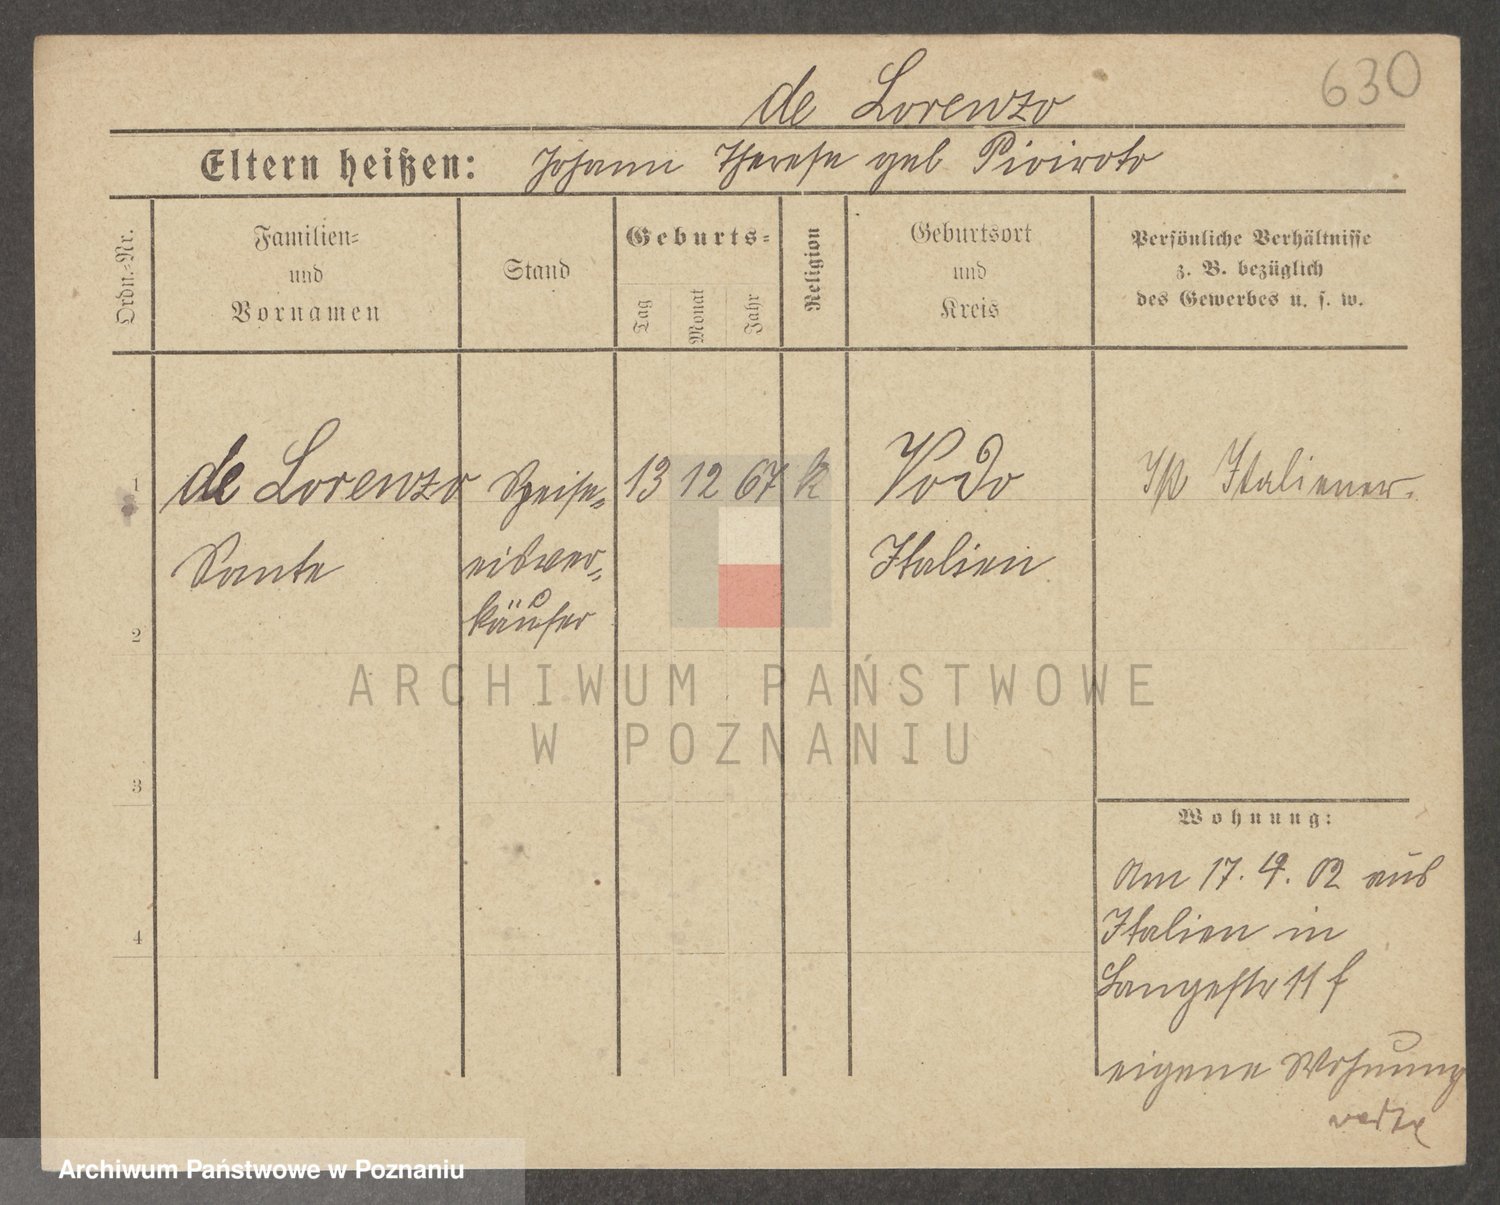 630
de Lorenzo
Eltern heißen: Johann Therese geb Piviroto
Ordn.-Nr.
Familien-
und
Vornamen
Stand
Geburts-
Tag
Monat
Jahr
Religion
Geburtsort
und
Kreis
Persönliche Verhältnisse
z. B. bezüglich
des Gewerbes u. s. w.
1
de Lorenzo Speise- 13 12 67 k Vodo Ist Italiener.
Sante eisver- Italien
käufer
2
ARCHIWUM PAŃSTWOWE
W POZNANIU
3
Wohnung:
Am 17. 4. 02 aus
Italien in
4
Langestr 11 f
eigene Wohnung
Archiwum Państwowe w Poznaniu